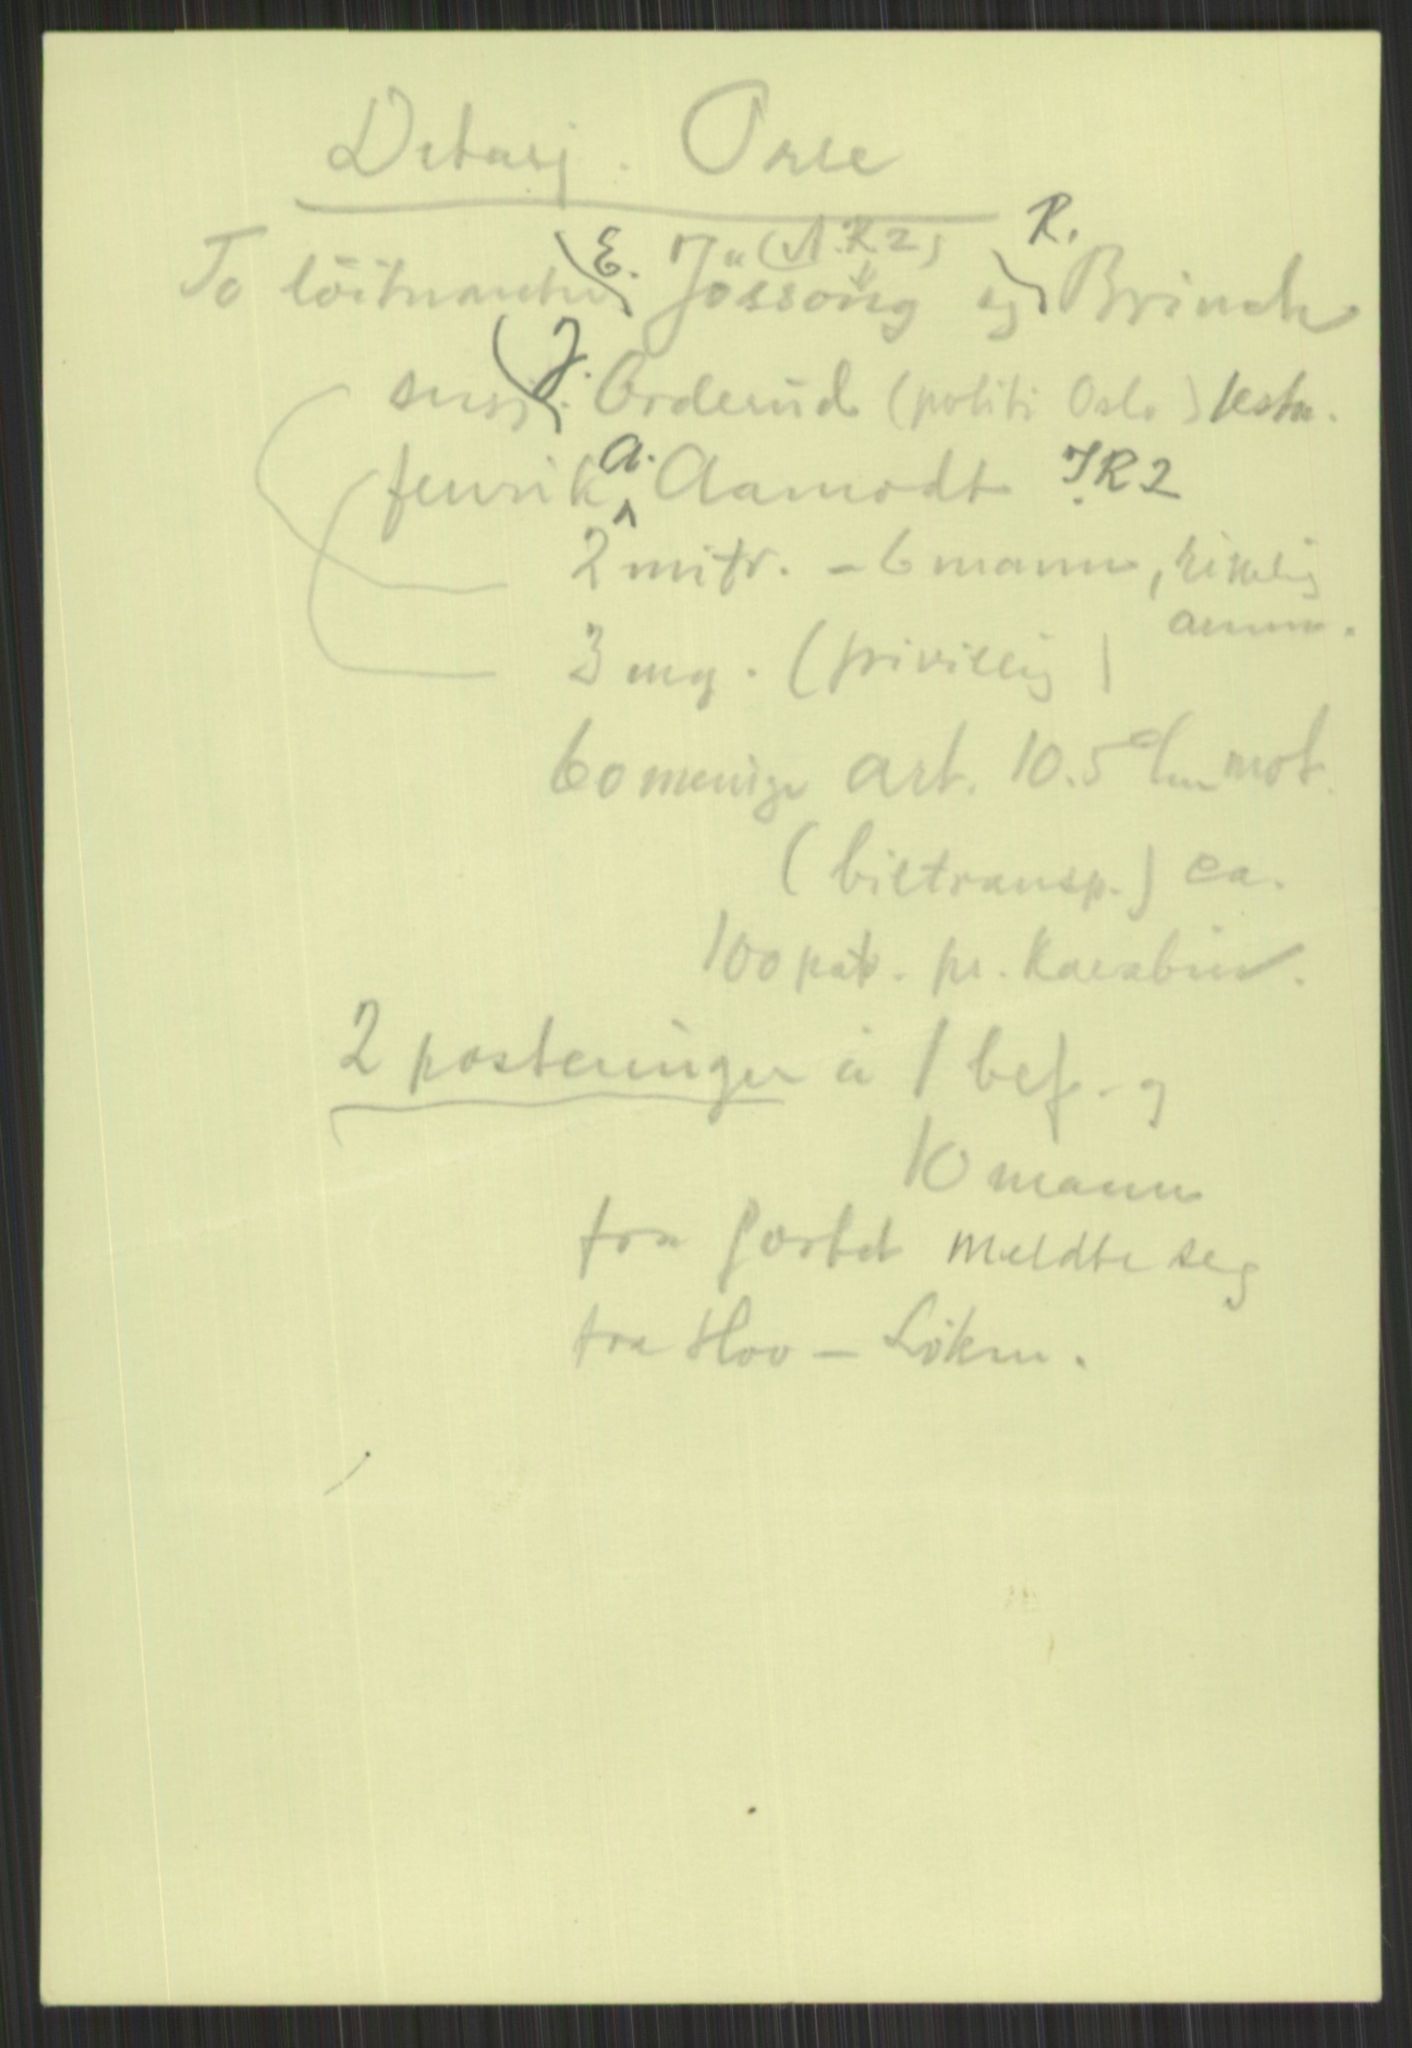 Detasj. Orse
To löitnanter E. Jössong (A.R 2) og R. Brinch
sersj. J. Orderud (politi Oslo)
fenrik A. Aamodt IR2
2 mitr. - 6 mann, rikelig
amm.
3 mg. (frivillig)
60 menige art. 10.5 cm mot.
(biltransp.) ca.
100 patr. pr. karabin.
2 posteringer à 1 bef. og
10 mann
fra fortet meldte seg
fra Hov - Löken.